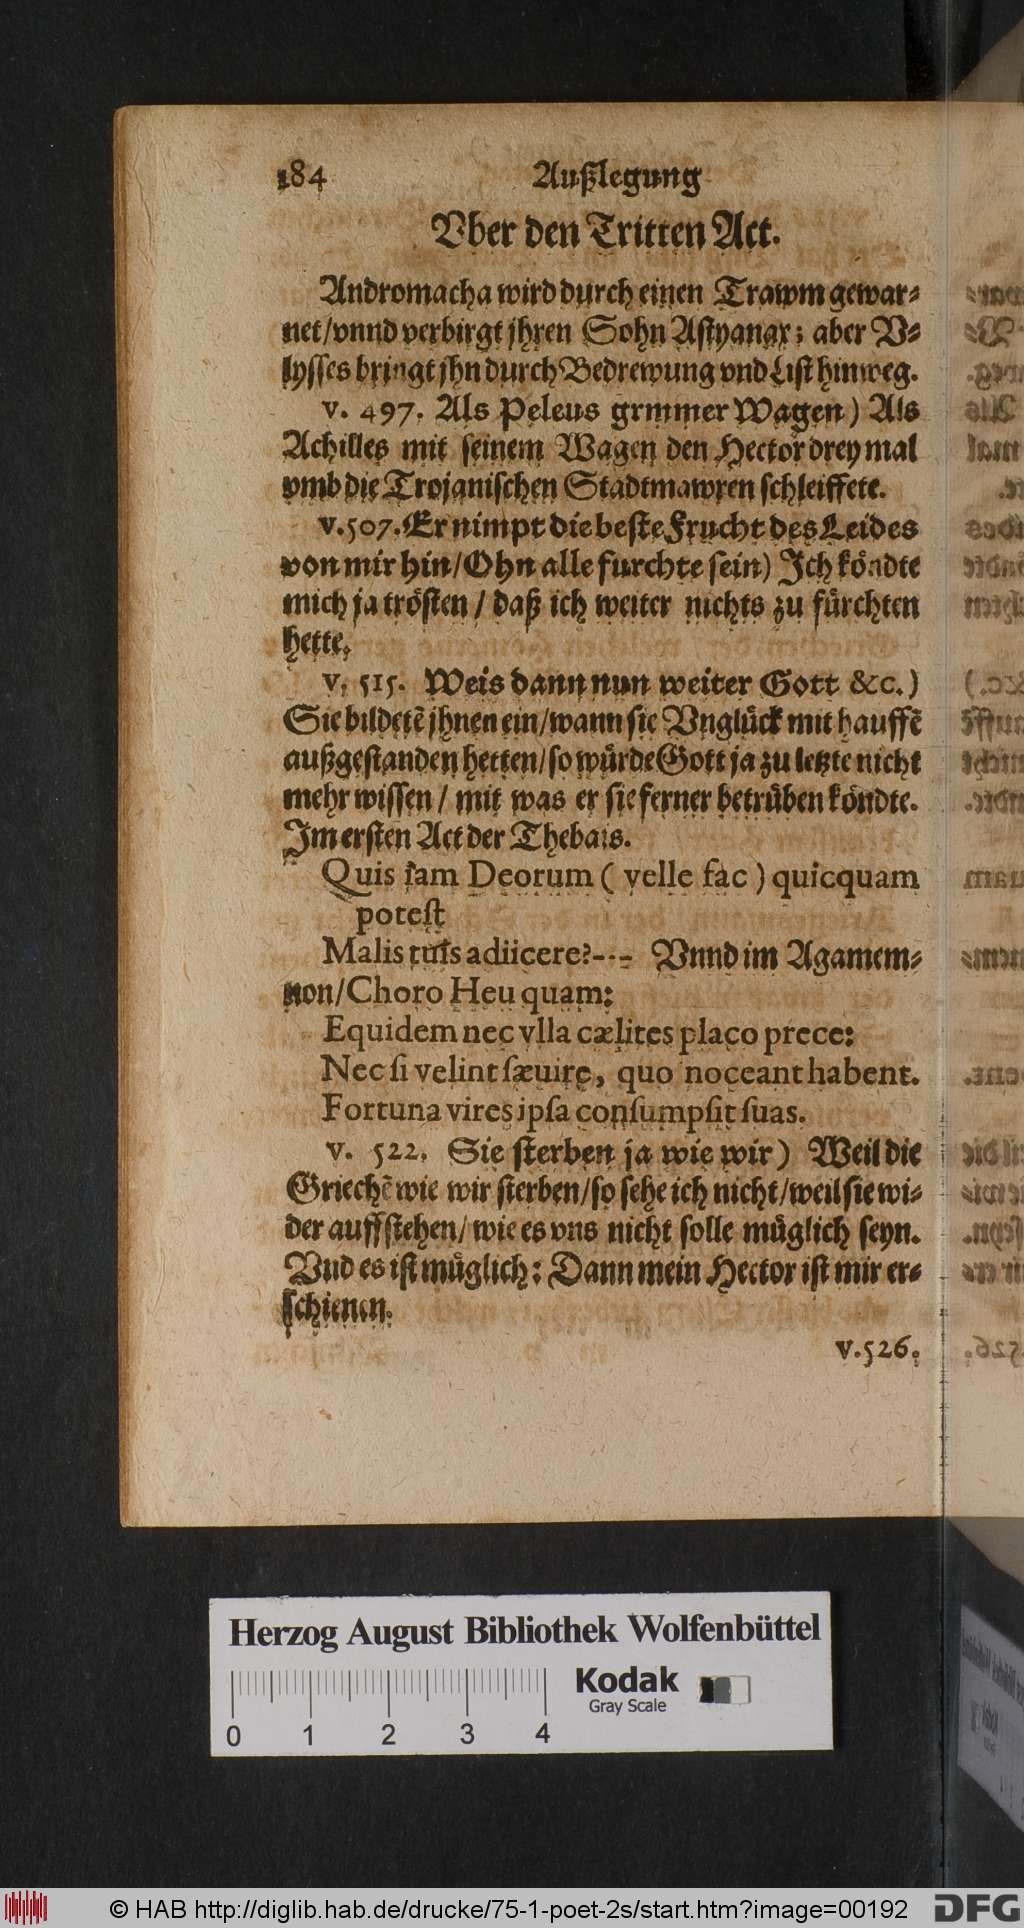 184 Außlegung
Vber den Tritten Act.
Andromacha wird durch einen Trawm gewar-
net/vnnd verbirgt jhren Sohn Astyanax; aber V-
lysses bringt jhn durch Bedrewung vnd List hinweg.
v. 497. Als Peleus grmmer Wagen) Als
Achilles mit seinem Wagen den Hector drey mal
vmb die Trojanischen Stadtmawren schleiffete.
v. 507. Er nimpt die beste Frucht des Leides
von mir hin/Ohn alle furchte sein) Jch köndte
mich ja trösten / daß ich weiter nichts zu fürchten
hette.
v. 515. Weis dann nun weiter Gott &c.)
Sie bildetē jhnen ein/wann sie Vnglück mit hauffē
außgestanden hetten/so würde Gott ja zu letzte nicht
mehr wissen / mit was er sie ferner betrüben köndte.
Jm ersten Act der Thebais.
Quis iam Deorum ( velle fac ) quicquam
potest
Malis tuis adiicere?--- Vnnd im Agamem-
non/Choro Heu quam:
Equidem nec vlla cælites placo prece:
Nec si velint sæuire, quo noceant habent.
Fortuna vires ipsa consumpsit suas.
v. 522. Sie sterben ja wie wir) Weil die
Griechē wie wir sterben/so sehe ich nicht/weil sie wi-
der auffstehen/wie es vns nicht solle müglich seyn.
Vnd es ist müglich: Dann mein Hector ist mir er-
schienen.
v. 526.
Herzog August Bibliothek Wolfenbüttel
0 1 2 3 4
Kodak
Gray Scale
© HAB http://diglib.hab.de/drucke/75-1-poet-2s/start.htm?image=00192
DFG